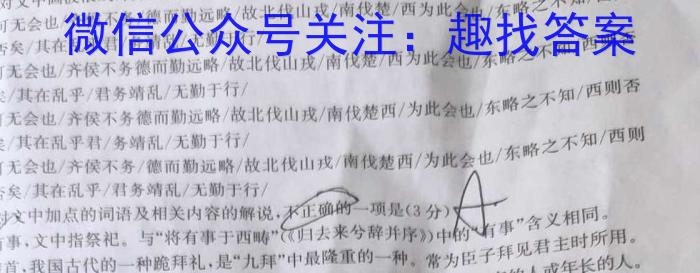 可无会也/齐侯不务德而勤远略/故北伐山戎/南伐楚/西为此会也/东略之不知/
微信公众号关注：趣找答案
否矣/其在乱乎/君务靖乱/无勤于行/
可无会也/齐侯不务德而勤远略/故北伐山戎/南伐楚西/为此会也/东略之不知/西则否
矣/其在乱乎/君务靖乱/无勤于行/
可无会也/齐侯不务/德而勤远略/故北伐山戎/南伐楚/西为此会也/东略之不知/西则否
矣/其在乱乎君/务靖乱/无勤于行/
可无会也/齐侯不务/德而勤远略/故北伐山戎/南伐楚西/为此会也/东略之不知/西则
否矣/其在乱乎/君务靖乱/无勤于行/
对文中加点的词语及相关内容的解说，不正确的一项是(3分) A
有事，文中指祭祀。与“将有事于西畴”(《归去来兮辞并序》)中的“有事”含义相同。
首，我国古代的一种跪拜礼，是“九拜”中最隆重的一种。常为臣子拜见君主时所用。
的人或年长的人。